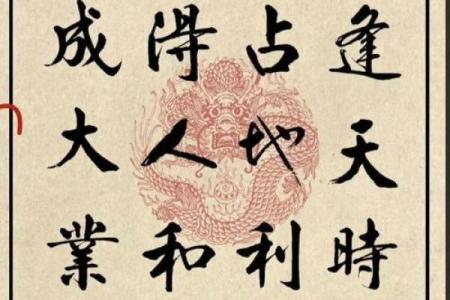 逢天時
占地利
得人和
成大業